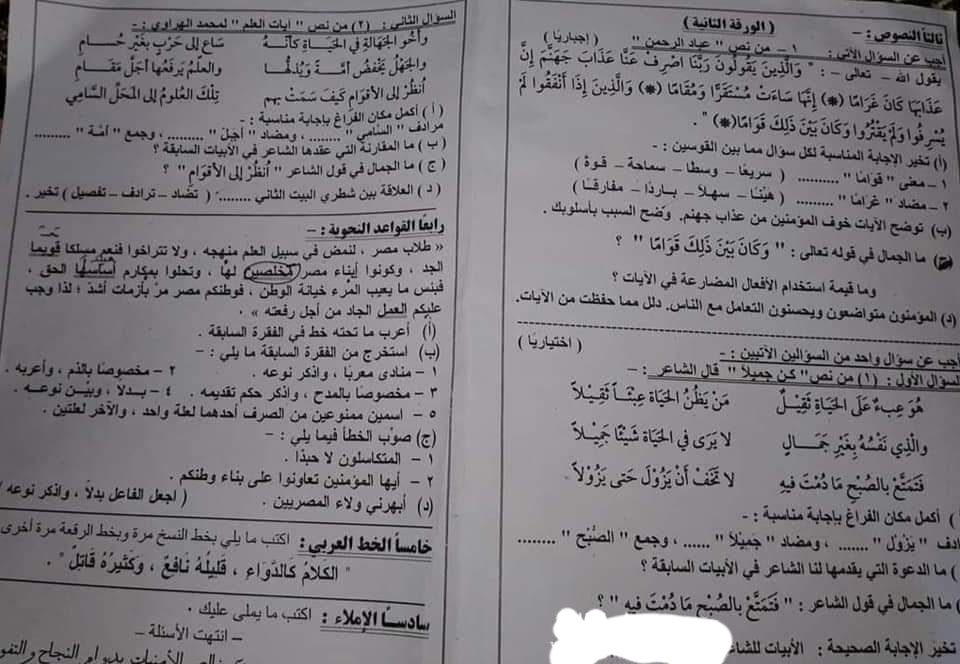 ( الورقة الثانية )
ثالثاً النصوص : -
أجب عن السؤال الآتي: ١ - من نص " عباد الرحمن " ( إجباريًا )
يقول الله – تعالى – : " وَالَّذِينَ يَقُولُونَ رَبَّنَا اصْرِفْ عَنَّا عَذَابَ جَهَنَّمَ إِنَّ
عَذَابَهَا كَانَ غَرَامًا (*) إِنَّهَا سَاءَتْ مُسْتَقَرًّا وَمُقَامًا (*) وَالَّذِينَ إِذَا أَنْفَقُوا لَمْ
يُسْرِفُوا وَلَمْ يَقْتُرُوا وَكَانَ بَيْنَ ذَلِكَ قَوَامًا(*) " .
(أ) تخير الإجابة المناسبة لكل سؤال مما بين القوسين : -
١ - معنى " قَوَامًا " .......... ( سريعًا – وسطًا – سماحة – قوة )
٢ - مضاد " غَرَامًا " .......... ( هيّنًا – سهلاً – باردًا – مفارقًا )
(ب) توضح الآيات خوف المؤمنين من عذاب جهنم. وضح السبب بأسلوبك .
(ج) ما الجمال في قوله تعالى : " وَكَانَ بَيْنَ ذَلِكَ قَوَامًا " ؟
وما قيمة استخدام الأفعال المضارعة في الآيات ؟
(د) المؤمنون متواضعون ويحسنون التعامل مع الناس. دلل مما حفظت من الآيات.
أجب عن سؤال واحد من السؤالين الآتيين : - ( اختياريًا )
السؤال الأول: (١) من نص" كن جميلاً " قال الشاعر : -
هُوَ عِبءٌ عَلَى الحَيَاةِ ثَقِيْلٌ مَنْ يَظُنُّ الحَيَاةَ عِبْئًا ثَقِيلاً
والَّذِي نَفْسُهُ بِغَيْرِ جَمَالٍ لا يَرَى في الحَيَاة شَيْئًا جَمِيلاً
فَتَمَتَّعْ بِالصُّبْحِ مَا دُمْتَ فِيهِ لا تَخَفْ أَنْ يَزُولَ حَتى يَزُوْلاَ
) أكمل مكان الفراغ بإجابة مناسبة : -
ادف " يَزُوْل " ....... ، ومضاد " جَمِيلاً " ...... ، وجمع " الصُّبْح " .........
) ما الدعوة التي يقدمها لنا الشاعر في الأبيات السابقة ؟
) ما الجمال في قول الشاعر : " فَتَمَتَّعْ بِالصُّبْحِ مَا دُمْتَ فِيهِ " ؟
تخير الإجابة الصحيحة : الأبيات للشاعر
السؤال الثاني : (٢) من نص " آيات العلم " لمحمد الهراوي : -
وأخُو الجَهَالةِ في الحَيَاةِ كأنَّهُ سَاعٍ إلى حَرْبٍ بِغَيْرِ حُسَامِ
والجَهْلُ يَخْفضُ أمَّةً وَيُذلُّهَا والعلْمُ يَرفَعُها أجَلَّ مَقَامِ
اُنظُرْ إلى الأقوَامِ كَيفَ سَمَتْ بِهم تِلكَ العُلومُ إلى المَحَلِّ السَّامِي
( أ ) أكمل مكان الفراغ بإجابة مناسبة : -
مرادف " السَّامي " ......... ، ومضاد " أجَلّ " ......... ، وجمع " أمَّة " .........
(ب ) ما المقارنة التي عقدها الشاعر في الأبيات السابقة ؟
( ج ) ما الجمال في قول الشاعر " اُنظُرْ إلى الأقوَامِ " ؟
( د ) العلاقة بين شطري البيت الثاني ........ ( تضاد – ترادف – تفصيل ) تخير .
رابعًا القواعد النحوية : -
« طلاب مصر ، لنمض في سبيل العلم منهجه ، ولا تتراخوا فنعم مسلكا قويما
الجد ، وكونوا أبناء مصر مخلصين لها ، وتحلوا بمكارم أساسها الحق ،
فبئس ما يعيب المرء خيانة الوطن ، فوطنكم مصر مرّ بأزمات أشدّ ؛ لذا وجب
عليكم العمل الجاد من أجل رفعته » .
(أ) أعرب ما تحته خط في الفقرة السابقة .
(ب) استخرج من الفقرة السابقة ما يلي : -
١ - منادى معربًا ، واذكر نوعه . ٢ - مخصوصًا بالذم ، وأعربه .
٣ - مخصوصًا بالمدح ، واذكر حكم تقديمه . ٤ - بدلاً ، وبيّن نوعه .
٥ - اسمين ممنوعين من الصرف أحدهما لعلة واحد ، والآخر لعلتين .
(ج) صوّب الخطأ فيما يلي : -
١ - المتكاسلون لا حبذا .
٢ - أيها المؤمنين تعاونوا على بناء وطنكم
(د) أبهرني ولاء المصريين . ( اجعل الفاعل بدلاً ، واذكر نوعه )
خامساً الخط العربي : اكتب ما يلي بخط النسخ مرة وبخط الرقعة مرة أخرى
" الكَلامُ كَالدَّوَاءِ ، قَلِيلُهُ نَافِعٌ ، وَكَثِيرُهُ قَاتِلٌ " .
سادسًا الإملاء : اكتب ما يملى عليك .
– انتهت الأسئلة –
الأمنيات بدوام النجاح والتفو